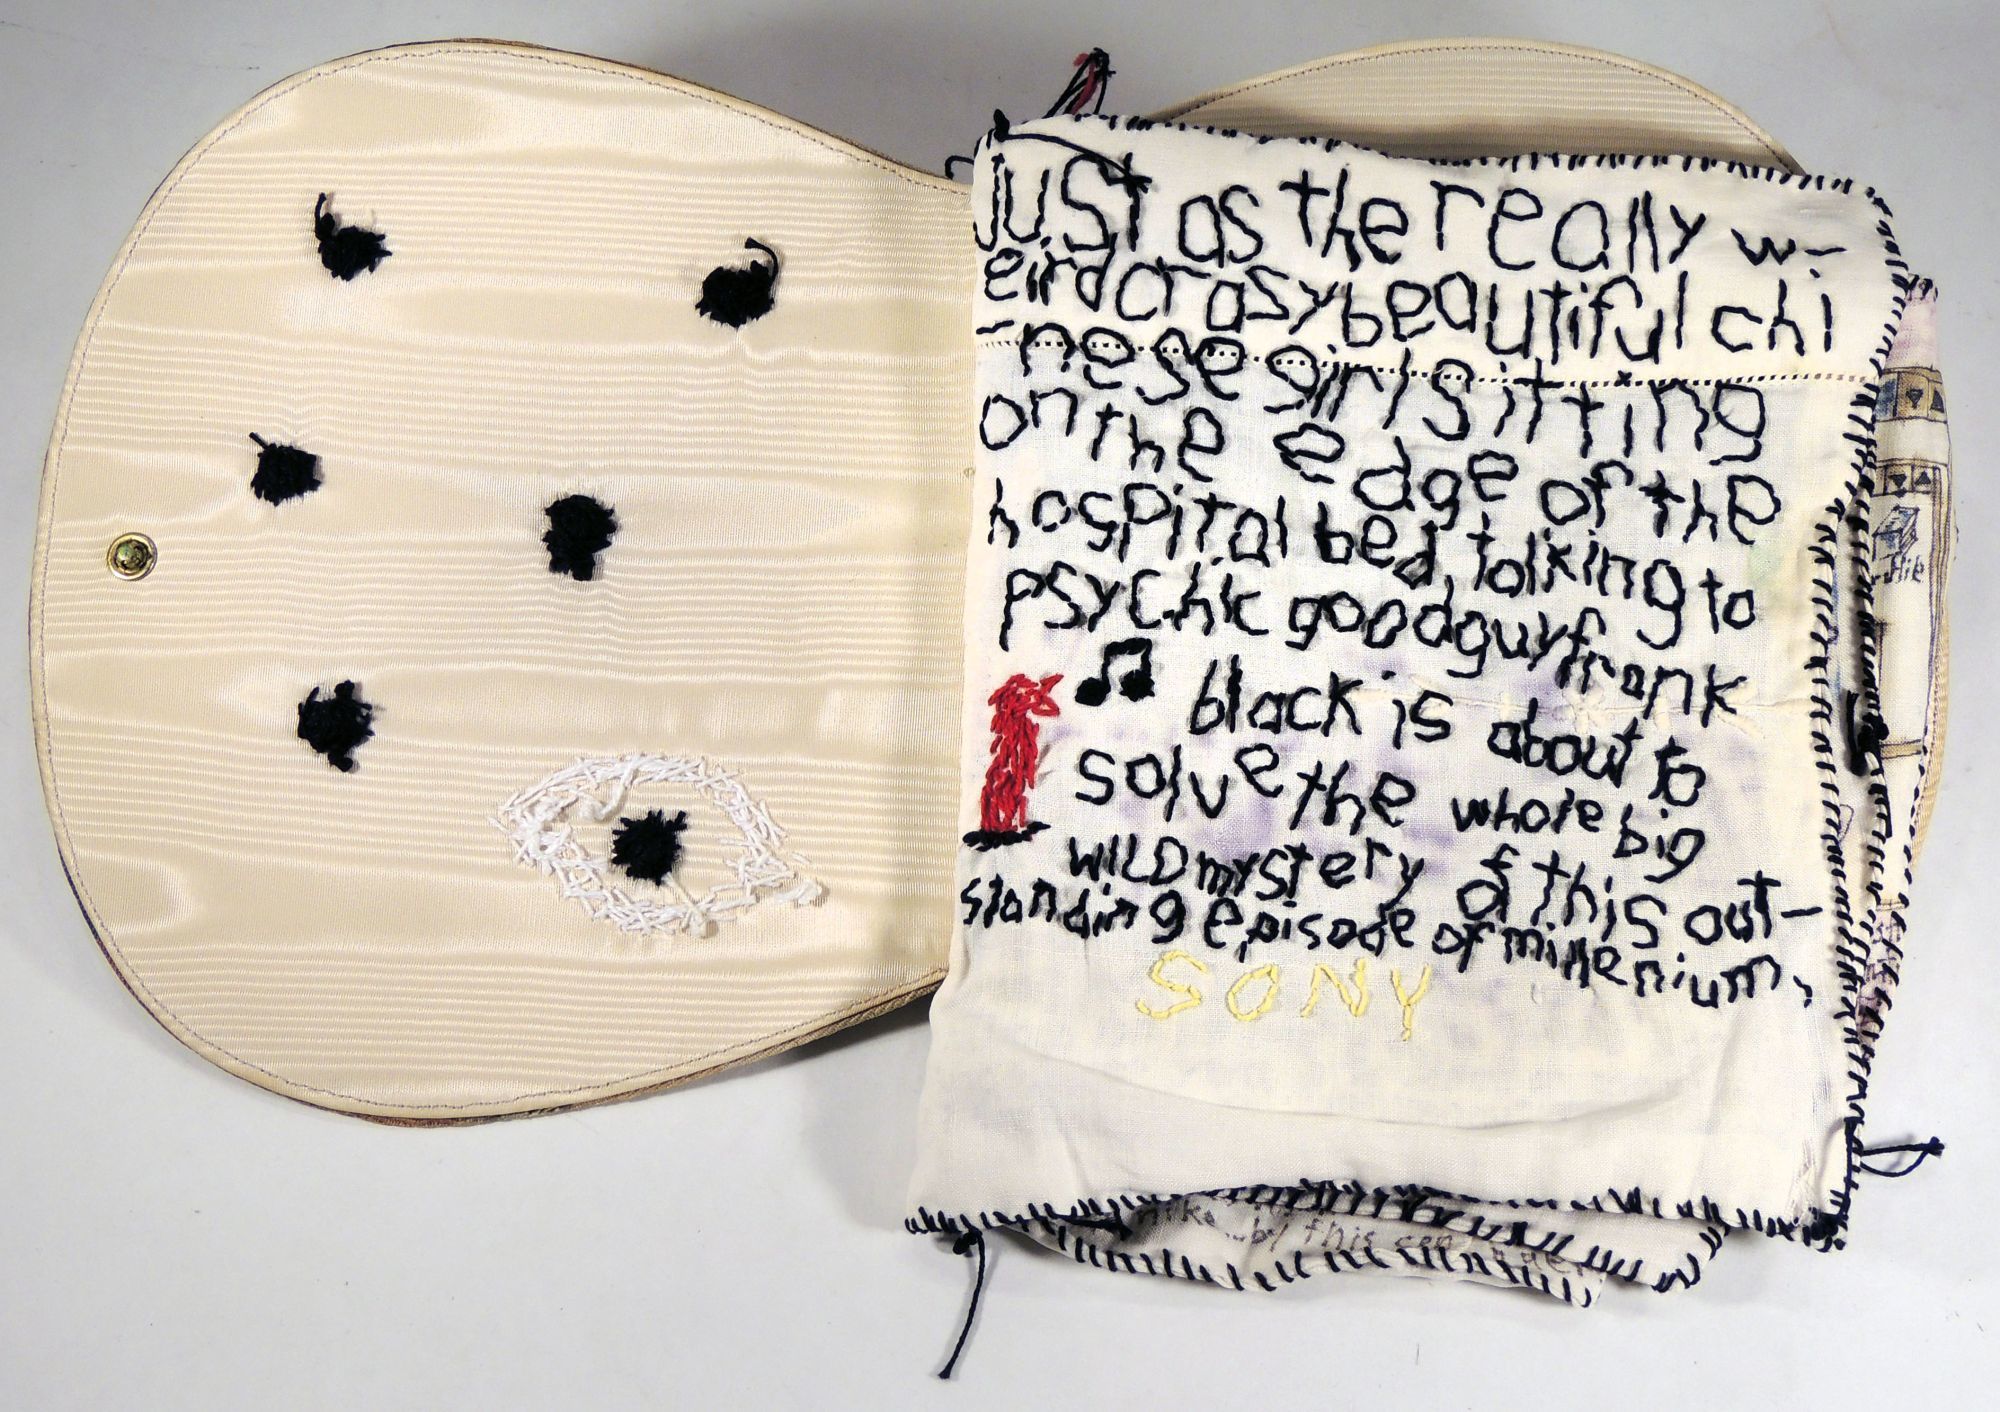 Just as the really w-
eird crasy beautiful chi
-nese girl sitting
on the edge of the
hospital bed, talking to
psychic goodguy frank
black is about to
solve the whole big
WILD mystery of this out-
standing episode of millenium,
SONY
by this